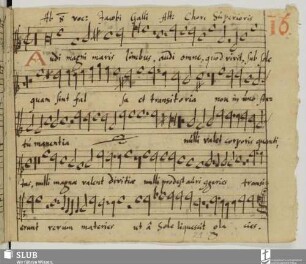 Ab 8 voc: Jacobi Galli Alti Chori Superioris
16.
Audi magni maris limbus, audi omne, quod vivit, sub Sole
quam sint fal sa et transitoria non in uno statu
tu manentia nulli valet corporis quanti
tas, nulli magnæ valent divitiæ nulli prodest alti generis transi
erunt rerum materies ut à Sole liquescit gla cies.
SLUB
Wir führen Wissen.